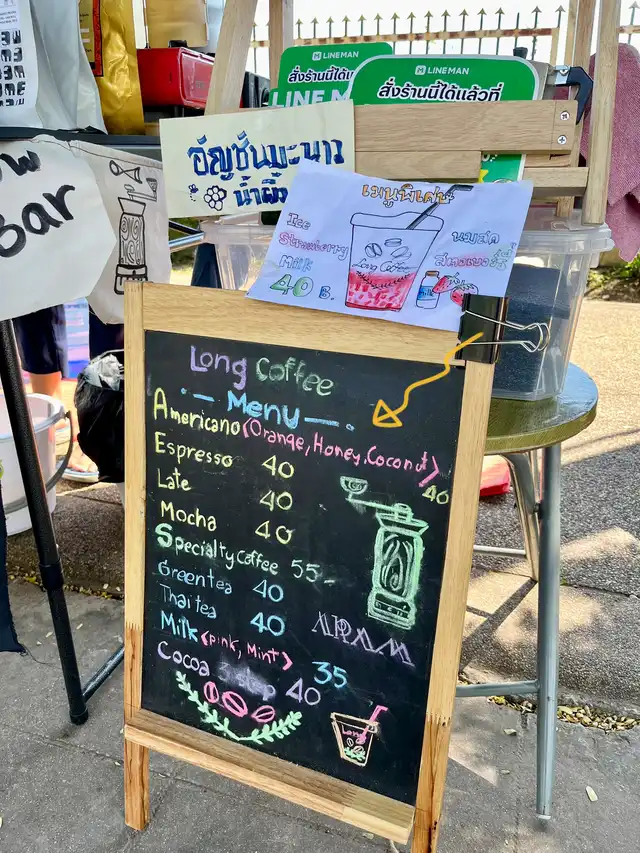 LINE MAN
สั่งร้านนี้ได้
LINE M
LINE MAN
สั่งร้านนี้ได้แล้วที่
อัญชันมะนาว
น้ำผึ้ง
Bar
เมนูพิเศษ
Ice
Strawberry
Milk
40 B.
นมสด
Long Coffee
Long Coffee
Menu
Americano (Orange, Honey, Coconut)
40
Espresso 40
Late 40
Mocha 40
Specialty Coffee 55.-
Green tea 40
Thai tea 40
Milk (pink, Mint) 35
Cocoa 40
Long